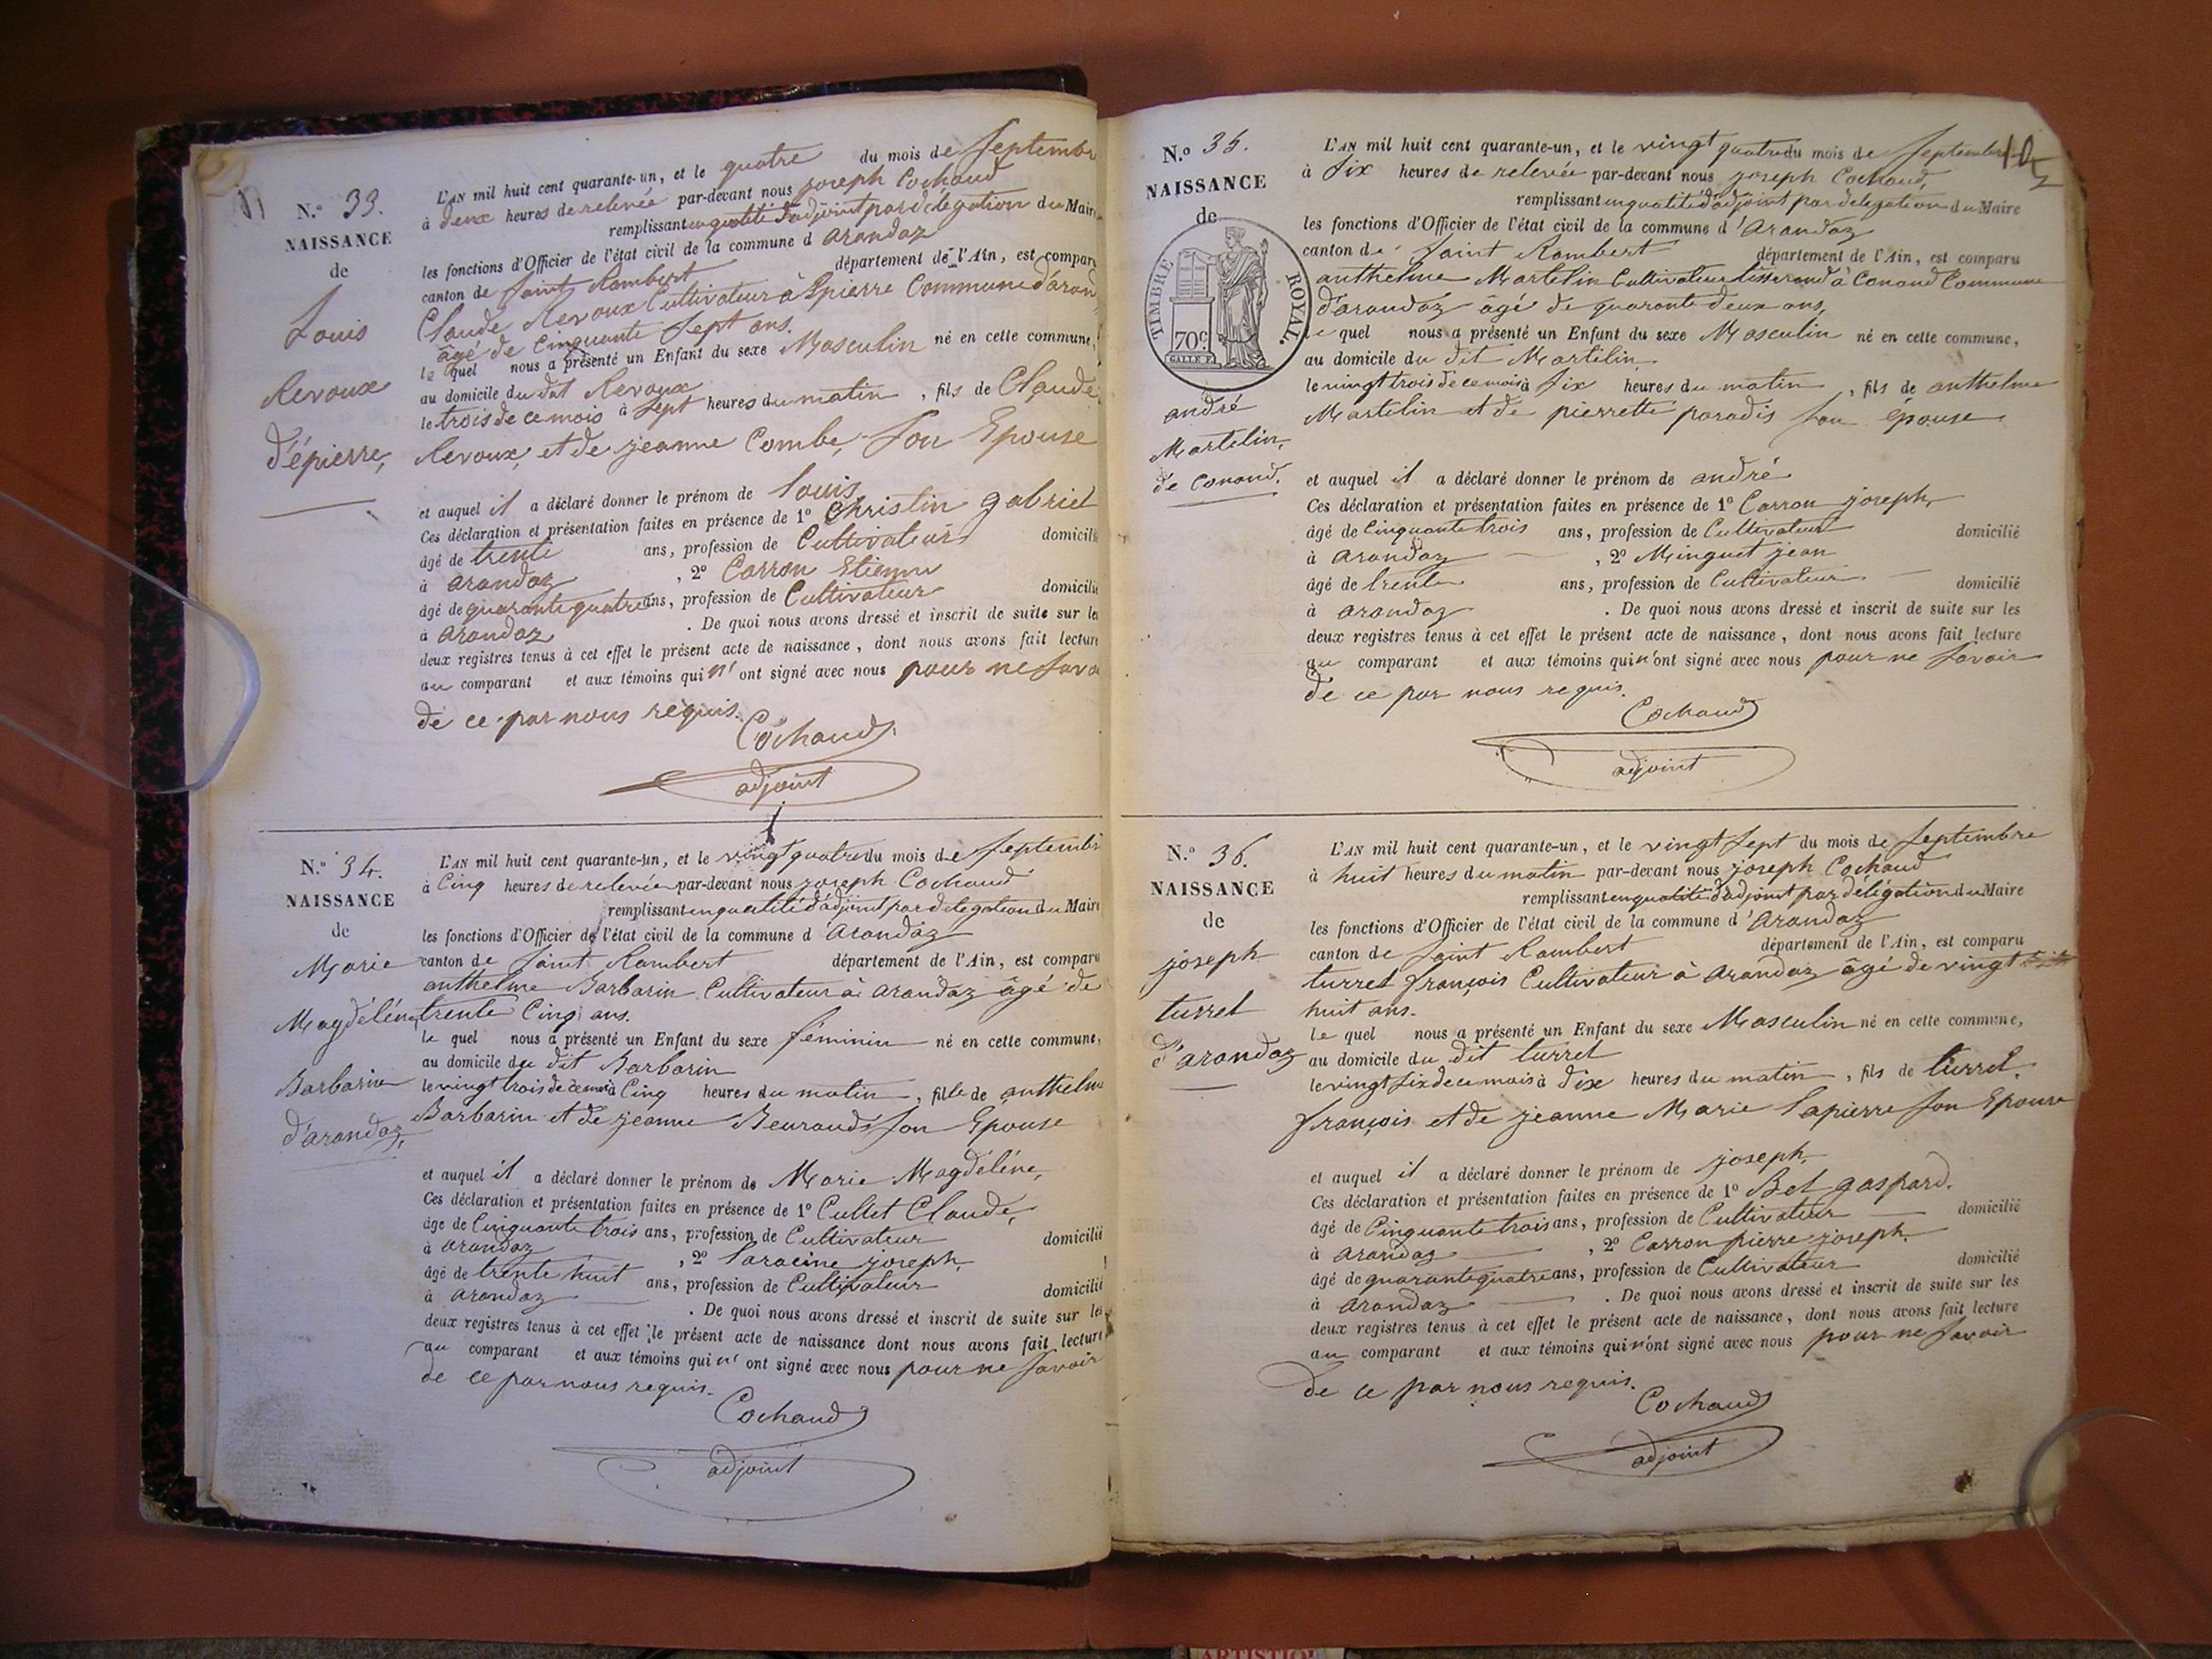 N.o 33.
NAISSANCE
de
Louis
Revoux
d'épierre,
L'AN mil huit cent quarante-un, et le quatre du mois de septembr
à deux heures de relevée par-devant nous joseph Cochaud
remplissant en qualité d'adjoint par délégation du Maire
les fonctions d'Officier de l'état civil de la commune d arandaz
canton de saint Rambert département de l'Ain, est compar
Claude Revoux Cultivateur à Epierre Commune d'aran
âgé de Cinquante sept ans.
le quel nous a présenté un Enfant du sexe Masculin né en cette commune,
au domicile du dit Revoux
le trois de ce mois à sept heures du matin, fils de Claude
Revoux, et de jeanne Combe, son Epouse
et auquel il a déclaré donner le prénom de Louis
Ces déclaration et présentation faites en présence de 1o Christin gabriel
âgé de trente ans, profession de Cultivateur domicilié
à arandaz, 2o Carron Etienne
âgé de quarante quatre ans, profession de Cultivateur domicilié
à Arandaz. De quoi nous avons dressé et inscrit de suite sur les
deux registres tenus à cet effet le présent acte de naissance, dont nous avons fait lecture
au comparant et aux témoins qui n' ont signé avec nous pour ne savo
de ce par nous requis.
Cochaud
adjoint
N.o 34.
NAISSANCE
de
Marie
Magdélène
Barbarin
d'arandaz,
L'AN mil huit cent quarante-un, et le vingt quatre du mois de septembr
à Cinq heures de relevée par-devant nous joseph Cochaud
remplissant en qualité d'adjoint par délégation du Maire
les fonctions d'Officier de l'état civil de la commune d arandaz
canton de saint Rambert département de l'Ain, est comparu
anthelme Barbarin Cultivateur à arandaz âgé de
trente Cinq ans.
le quel nous a présenté un Enfant du sexe féminin né en cette commune,
au domicile du dit Barbarin
le vingt trois de ce mois à Cinq heures du matin, fille de anthelme
Barbarin et de jeanne Beuraud son Epouse
et auquel il a déclaré donner le prénom de Marie Magdéléne,
Ces déclaration et présentation faites en présence de 1o Cullet Claude,
âge de Cinquante trois ans, profession de Cultivateur domicilié
à arandaz, 2o Saracine joseph,
âgé de trente huit ans, profession de Cultivateur domicilié
à arandaz. De quoi nous avons dressé et inscrit de suite sur les
deux registres tenus à cet effet le présent acte de naissance dont nous avons fait lecture
au comparant et aux témoins qui n' ont signé avec nous pour ne savoir
de ce par nous requis.
Cochaud
adjoint
N.o 35.
NAISSANCE
de
TIMBRE ROYAL.
70c
GALLE F.
andré
Martelin,
de Conand.
L'AN mil huit cent quarante-un, et le vingt quatre du mois de septembre
à six heures de relevée par-devant nous joseph Cochaud,
remplissant en qualité d'adjoint par délégation du Maire
les fonctions d'Officier de l'état civil de la commune d'Arandaz
canton de saint Rambert département de l'Ain, est comparu
anthelme Martelin Cultivateur tisserand à Conand Commune
d'arandaz âgé de quarante deux ans,
le quel nous a présenté un Enfant du sexe Masculin né en cette commune,
au domicile du dit Martelin
le vingt trois de ce mois à six heures du matin, fils de anthelme
Martelin et de pierrette paradis son épouse
et auquel il a déclaré donner le prénom de andré
Ces déclaration et présentation faites en présence de 1o Carron joseph,
âgé de Cinquante trois ans, profession de Cultivateur domicilié
à arandaz, 2o Minguet jean
âgé de trente ans, profession de Cultivateur domicilié
à arandaz. De quoi nous avons dressé et inscrit de suite sur les
deux registres tenus à cet effet le présent acte de naissance, dont nous avons fait lecture
au comparant et aux témoins qui n'ont signé avec nous pour ne savoir
de ce par nous requis.
Cochaud
adjoint
N.o 36.
NAISSANCE
de
joseph
turrel
d'arandaz
L'AN mil huit cent quarante-un, et le vingt sept du mois de septembre
à huit heures du matin par-devant nous joseph Cochaud
remplissant en qualité d'adjoint par délégation du Maire
les fonctions d'Officier de l'état civil de la commune d'Arandaz
canton de saint Rambert département de l'Ain, est comparu
turrel françois Cultivateur à Arandaz âgé de vingt
huit ans.
le quel nous a présenté un Enfant du sexe Masculin né en cette commune,
au domicile du dit turrel
le vingt six de ce mois à dix heures du matin, fils de turrel
françois et de jeanne Marie Lapierre son Epouse
et auquel il a déclaré donner le prénom de joseph,
Ces déclaration et présentation faites en présence de 1o Bel gaspard.
âgé de Cinquante trois ans, profession de Cultivateur domicilié
à arandaz, 2o Carron pierre joseph.
âgé de quarante quatre ans, profession de Cultivateur domicilié
à Arandaz. De quoi nous avons dressé et inscrit de suite sur les
deux registres tenus à cet effet le présent acte de naissance, dont nous avons fait lecture
au comparant et aux témoins qui n'ont signé avec nous pour ne savoir
de ce par nous requis.
Cochaud
adjoint